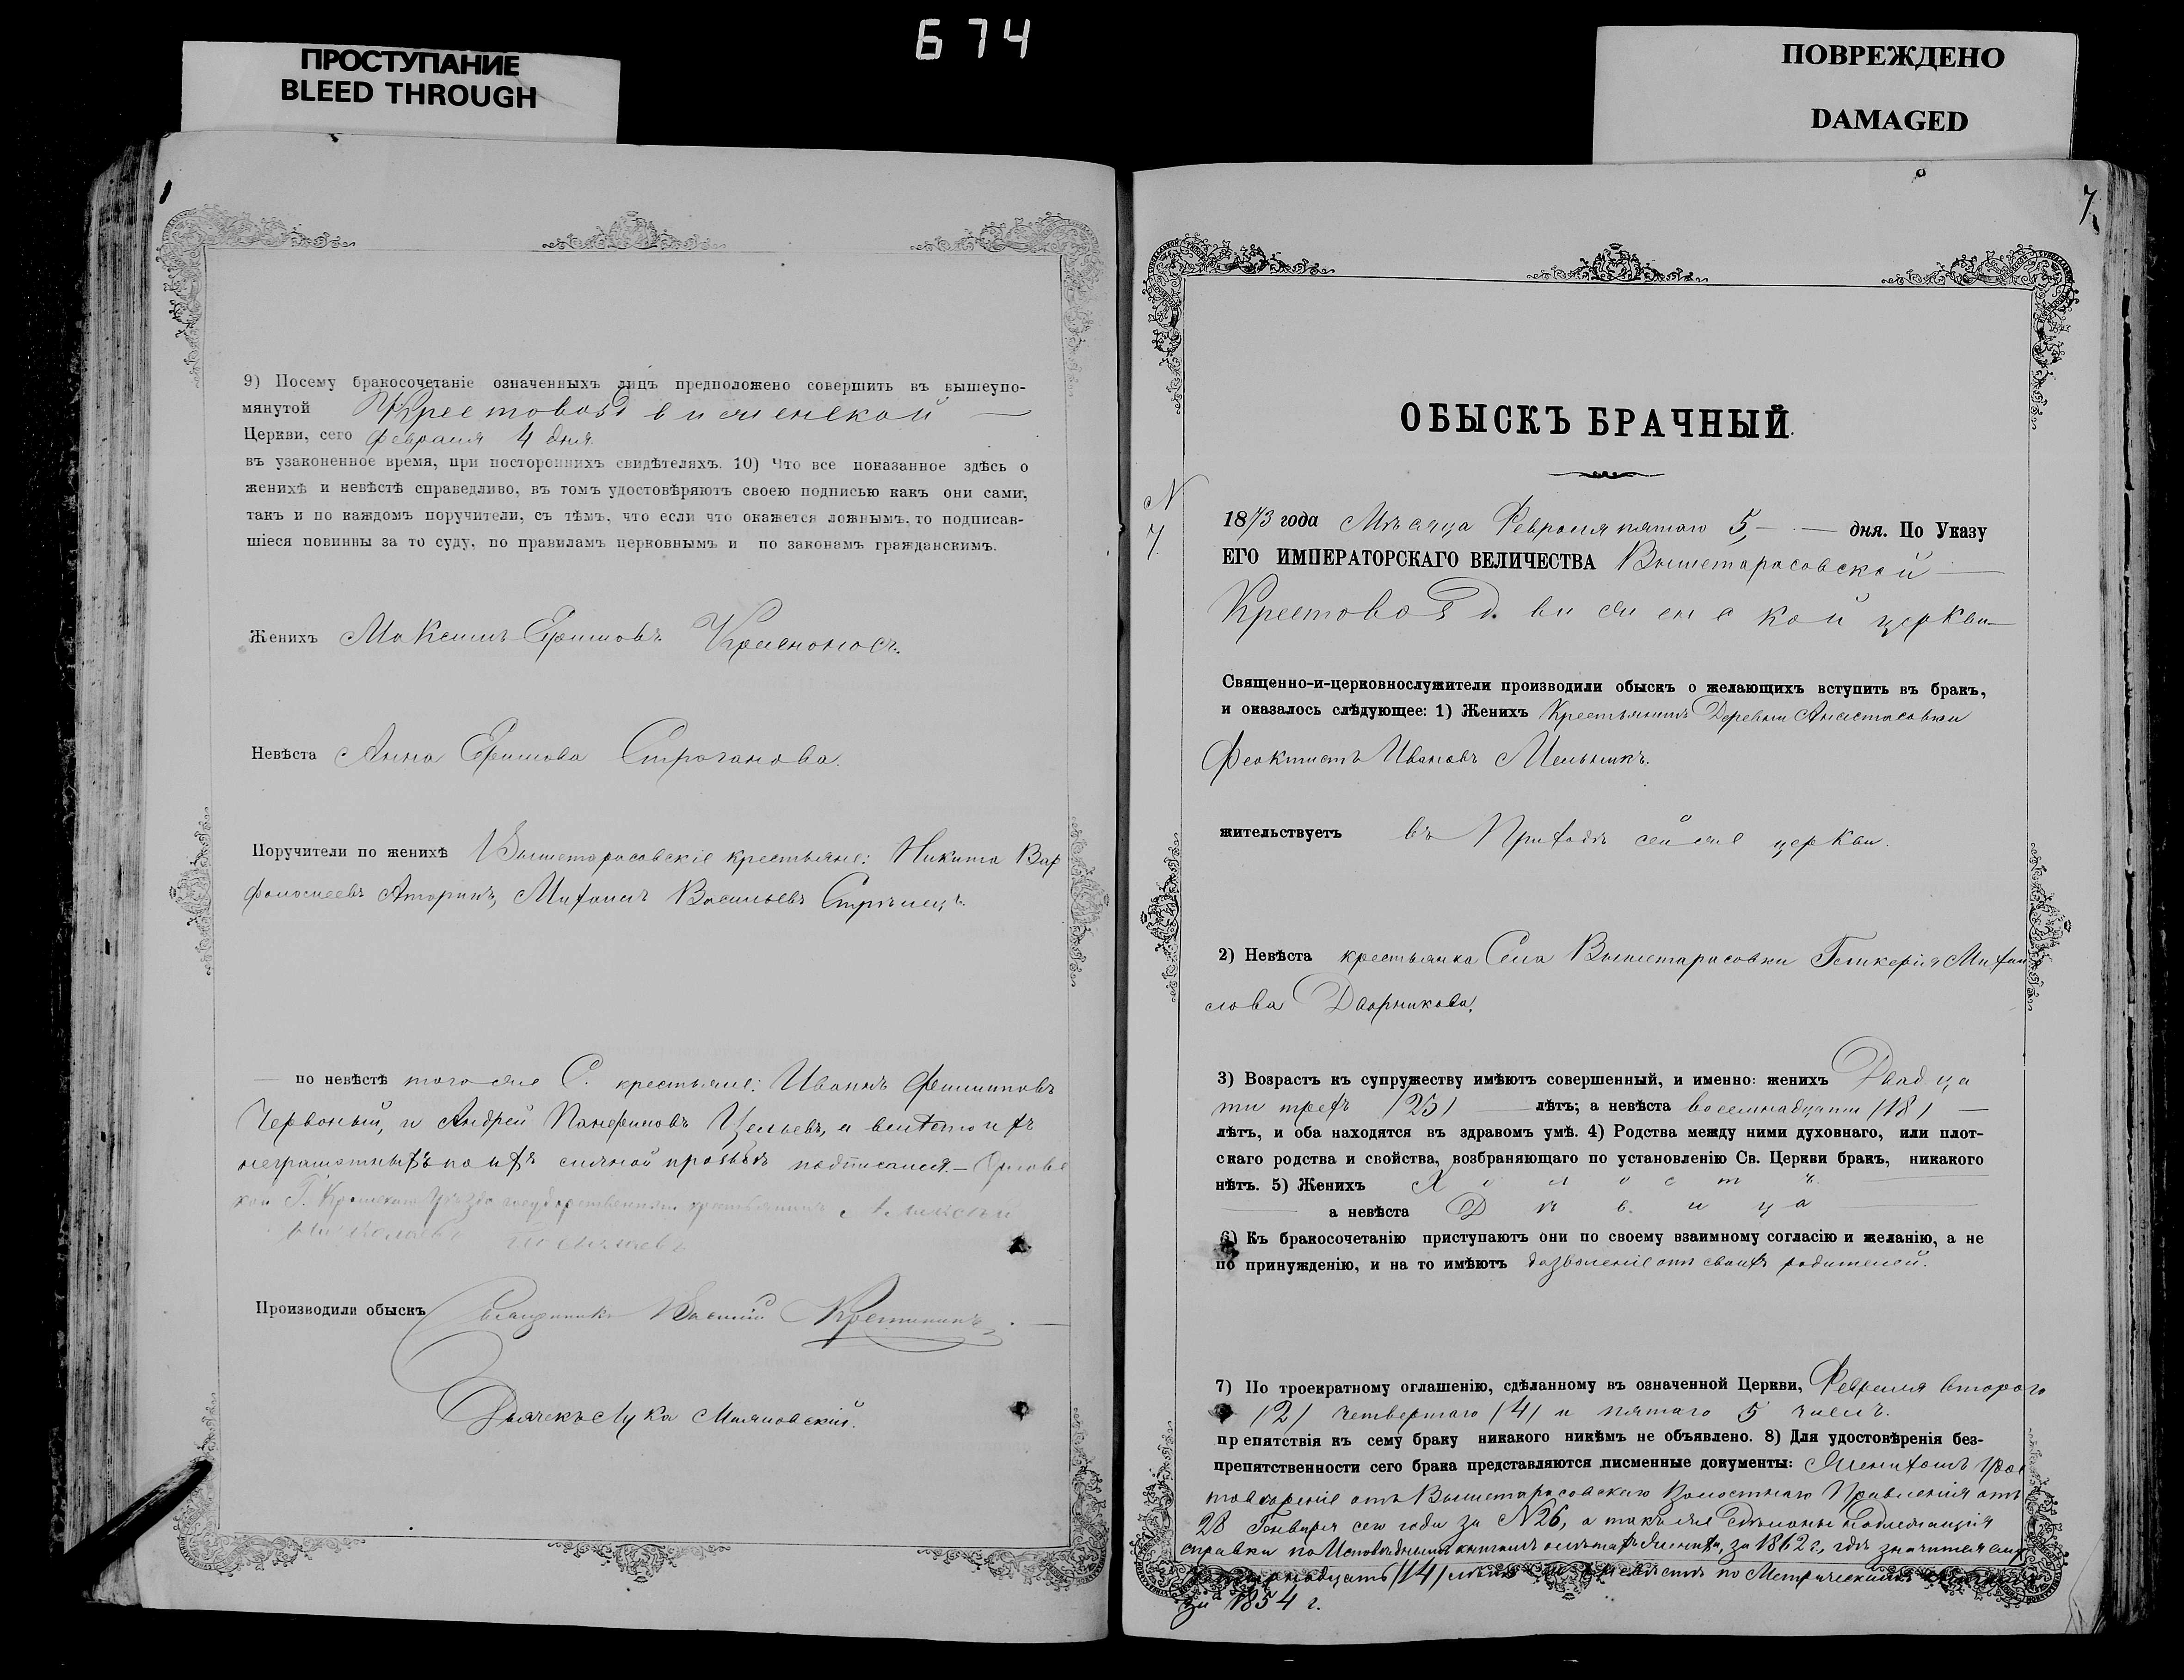 674
ПРОСТУПАНИЕ
BLEED THROUGH
ПОВРЕЖДЕНО
DAMAGED
9) Посему бракосочетаніе означенныхъ лицъ предположено совершить въ вышеупо-
мянутой Крестовоздвиженской
Церкви, сего февраля 4 дня
въ узаконенное время, при постороннихъ свидѣтеляхъ. 10) Что все показанное здѣсь о
женихѣ и невѣстѣ справедливо, въ томъ удостовѣряютъ своею подписью какъ они сами,
такъ и по каждомъ поручители, съ тѣмъ, что если что окажется ложнымъ, то подписав-
шіеся повинны за то суду, по правиламъ церковнымъ и по законамъ гражданскимъ.
Женихъ Максимъ Ефимовъ
Невѣста Анна Ефимова Строганова.
Поручители по женихѣ Вышетарасовскіе крестьяне: Никита Вар
фоломеевъ Михаилъ Васильевъ Стрѣлецъ.
по невѣстѣ того же С. крестьяне: Иванъ Филипповъ
Червоный, и Андрей а вмѣсто ихъ
неграмотныхъ по ихъ личной прозьбѣ подписался
Г. Уѣзда государственный крестьянинъ Алексѣй
Производили обыскъ Священникъ Василій
Дьячекъ Лука
7.
ОБЫСКЪ БРАЧНЫЙ.
N
7.
1873 года Мѣсяца Февраля пятаго 5, дня. По Указу
ЕГО ИМПЕРАТОРСКАГО ВЕЛИЧЕСТВА Вышетарасовской
Крестовоздвиженской церкви
Священно-и-церковнослужители производили обыскъ о желающихъ вступить въ бракъ,
и оказалось слѣдующее: 1) Женихъ Крестьянинъ Деревни Анастасовки
Феоктистъ Ивановъ Мельникъ.
жительствуетъ въ Приходѣ сей же церкви.
2) Невѣста крестьянка Села Вышетарасовки Гликерія Михаи
лова Дворникова.
3) Возрастъ къ супружеству имѣютъ совершенный, и именно: женихъ Двадца
ти трехъ /23/ лѣтъ; а невѣста восемнадцати /18/
лѣтъ, и оба находятся въ здравомъ умѣ. 4) Родства между ними духовнаго, или плот-
скаго родства и свойства, возбраняющаго по установленію Св. Церкви бракъ, никакого
нѣтъ. 5) Женихъ Холостъ
а невѣста Дѣвица
6) Къ бракосочетанію приступаютъ они по своему взаимному согласію и желанію, а не
по принужденію, и на то имѣютъ дозволеніе отъ своихъ родителей.
7) По троекратному оглашенію, сдѣланному въ означенной Церкви, Февраля втораго
/2/ четвертаго /4/ и пятаго 5 числъ.
препятствія къ сему браку никакого никѣмъ не объявлено. 8) Для удостовѣренія без-
препятственности сего брака представляются писменные документы: Женихомъ Удос
товѣреніе отъ Вышетарасовскаго Волостнаго Правленія отъ
28 Генваря сего года за N 26, а также сдѣланы надлежащія
справки по Исповѣднымъ книгамъ о лѣтахъ жениха, за 1862 г., гдѣ значится ему
четырнадцать /14/ лѣтъ невѣстѣ по Метрическимъ
за 1854 г.